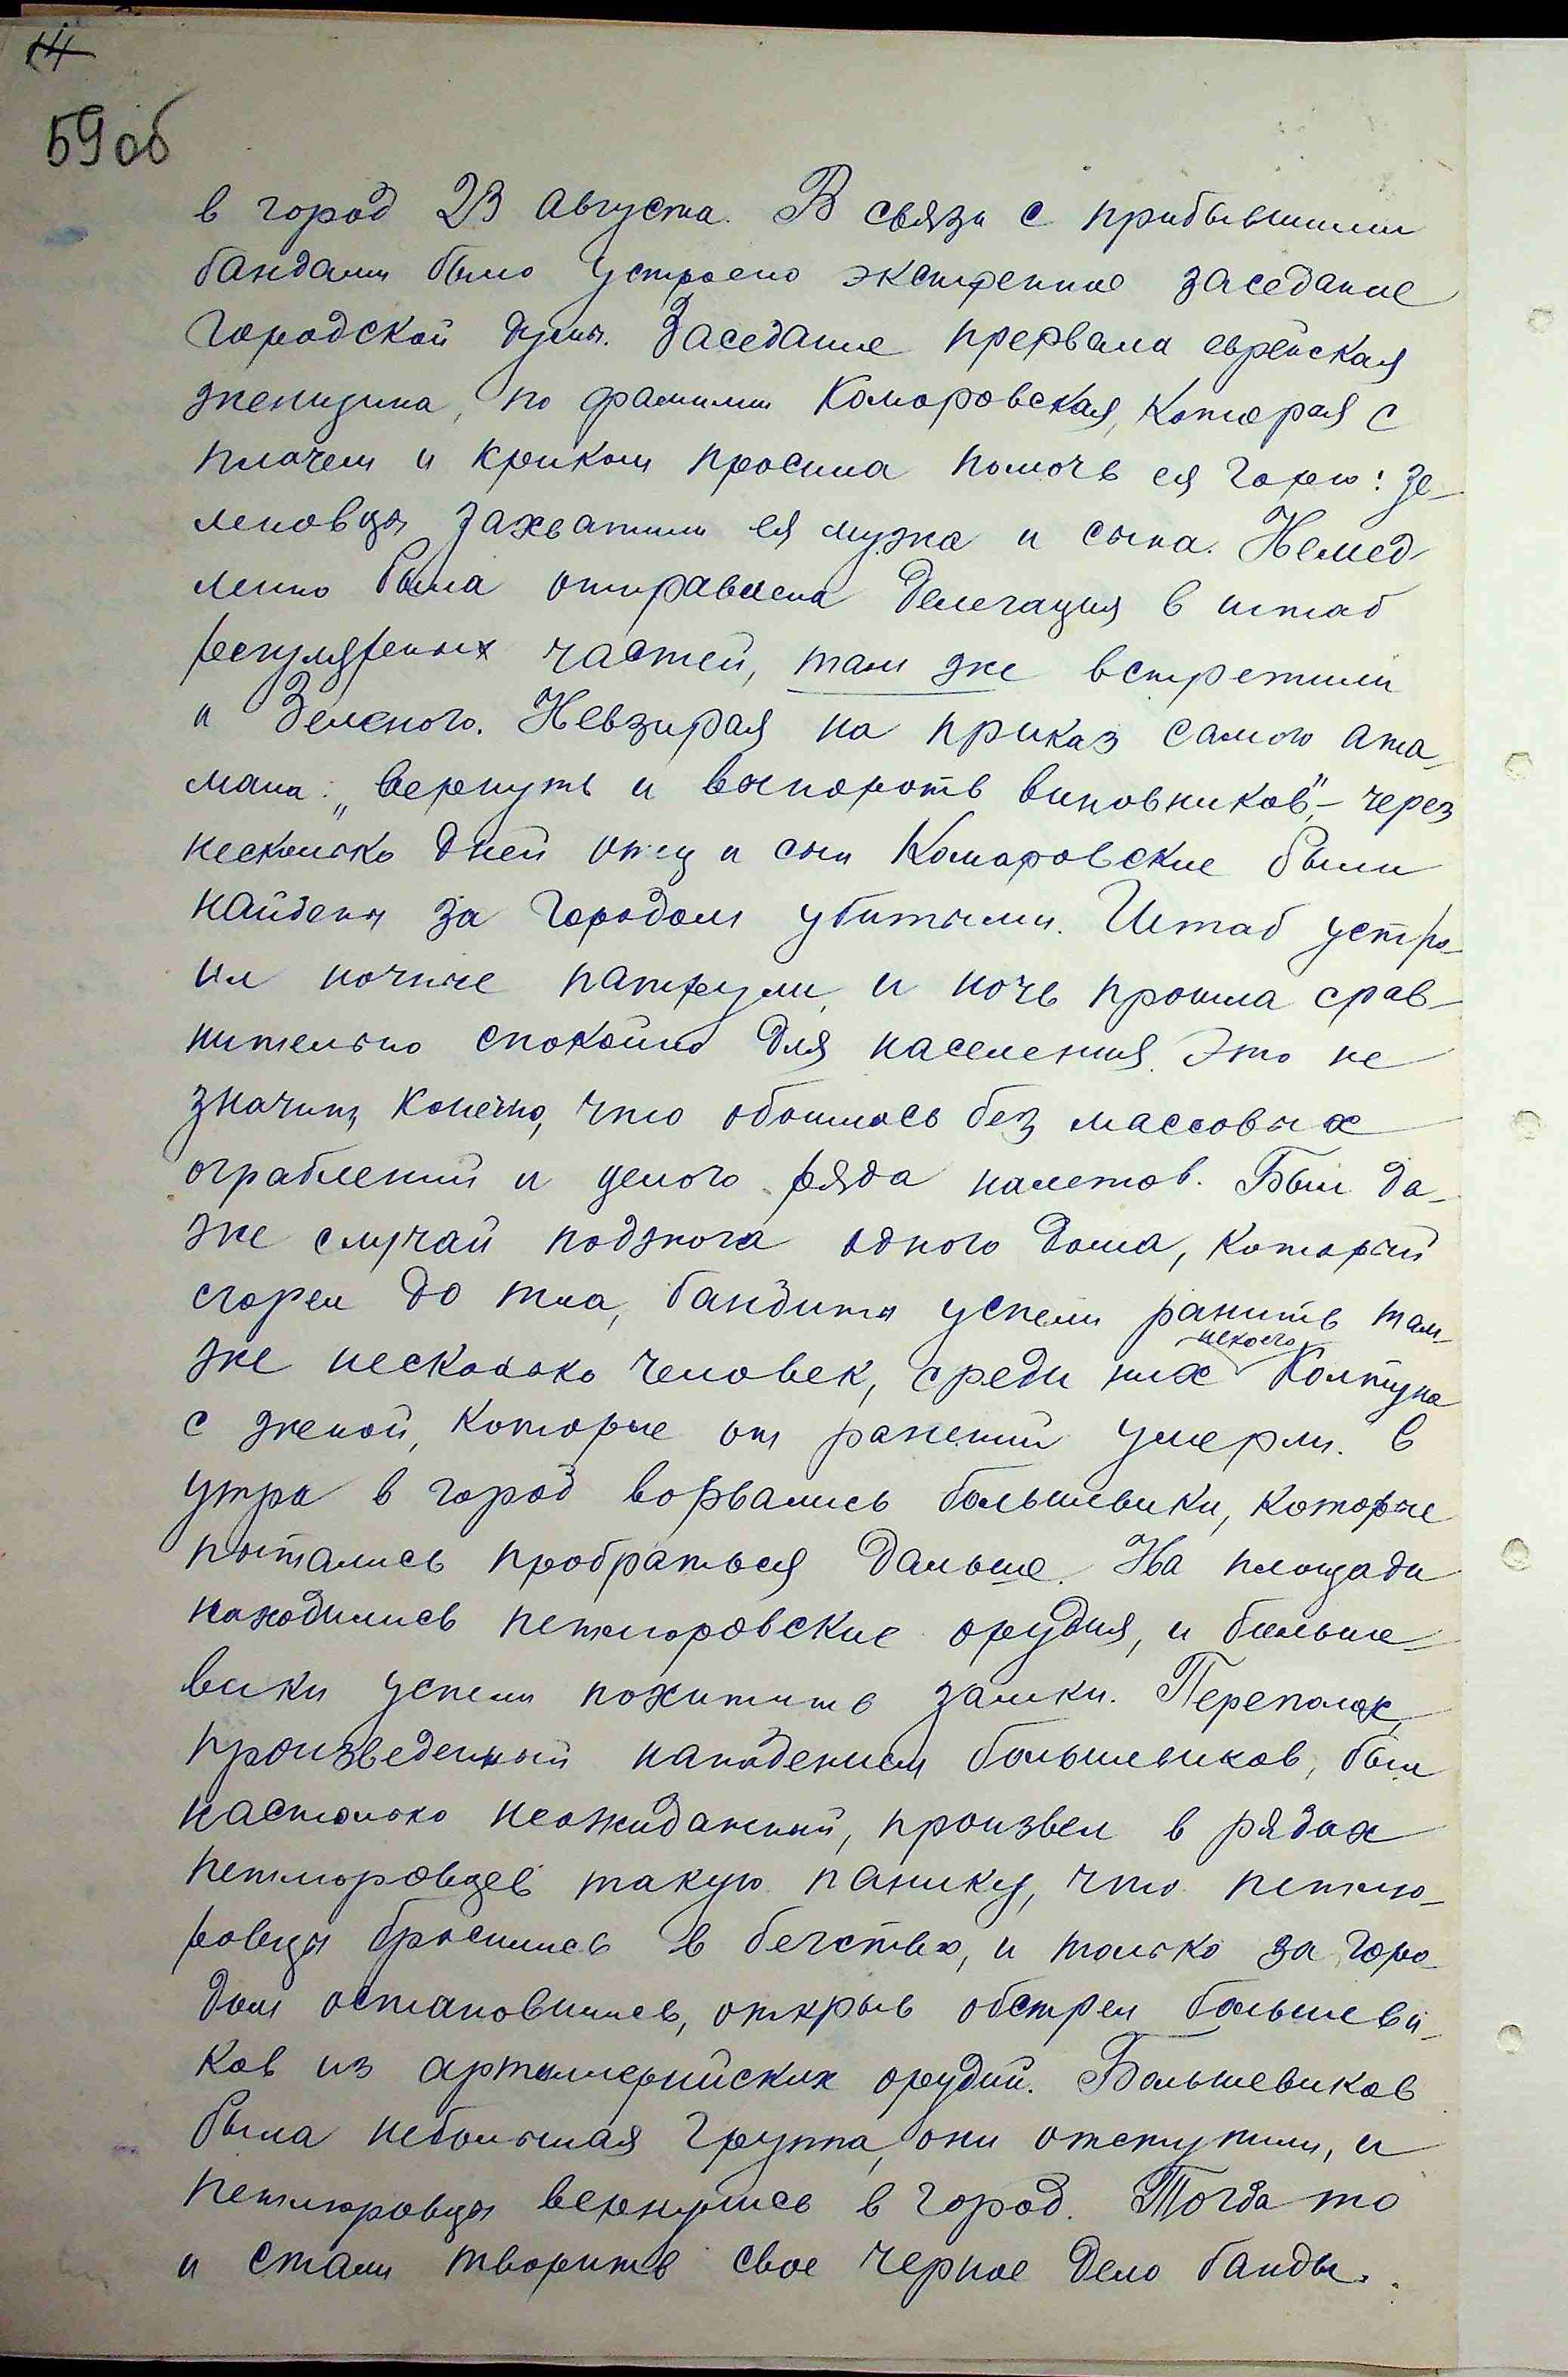 14
59 об
в город 23 Августа. В связи с прибывшими
бандами было устроено экстренное заседание
Городской думы. Заседание прервала еврейская
женщина, по фамилии Комаровская, которая с
плачем и криком просила помочь ея горю: зе-
леновцы захватили ея мужа и сына. Немед-
ленно была отправлена делегация в штаб
регулярных частей, там же встретили
и Зеленого. Невзирая на приказ самого ата-
мана: „вернуть и выпороть виновников", – через
несколько дней отец и сын Комаровские были
найдены за городом убитыми. Штаб устро-
ил ночные патрули, и ночь прошла срав-
нительно спокойно для населения. Это не
значит, конечно, что обошлось без массовых
ограблений и целого ряда налетов. Был да-
же случай поджога одного дома, который
сгорел до тла, бандиты успели ранить там-
же несколько человек, среди них некоего Колтуна
с женой, которые от ранений умерли. С
утра в город ворвались большевики, которые
пытались пробраться дальше. На площади
находились петлюровские орудия, и больше-
вики успели похитить замки. Переполох,
произведенный нападением большевиков, был
настолько неожиданный, произвел в рядах
петлюровцев такую панику, что петлю-
ровцы бросились в бегство, и только за горо-
дом остановились, открыв обстрел большеви-
ков из артиллерийских орудий. Большевиков
была небольшая группа, они отступили, и
петлюровцы вернулись в город. Тогда то
и стали творить свое черное дело банды.